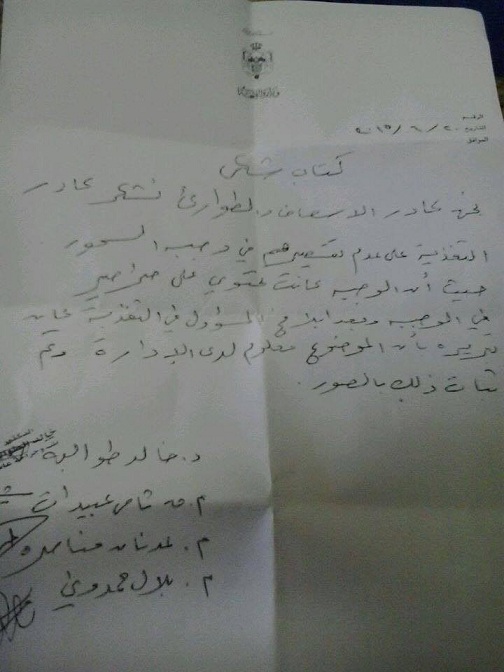 الرقم
التاريخ ٢٠١٥/٦/٢٠
الموافق
كتاب شكر
نحن كادر الاسعاف والطوارئ نشكر كادر
التغذية على عدم تقصيرهم في وجبه السحور
حيث أن الوجبه كانت تحتوي على صراصير
في الوجبه وبعد ابلاغ المسؤول في التغذية كان
تبريره بأن الموضوع معلوم لدى الادارة وتم
ذلك بالصور.
د. خالد طوالبه
م. عبيدات
م. عدنان
م. بلال حمدوني